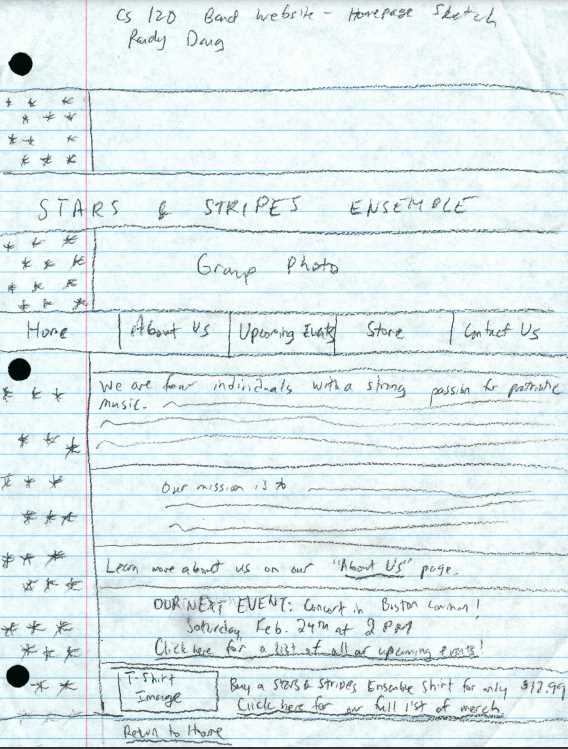 CS 120 Band Website - Homepage Sketch
Randy Dang
STARS & STRIPES ENSEMBLE
Group Photo
Home About Us Upcoming Events Store Contact Us
We are four individuals with a strong passion for patriotic
music.
Our mission is to
Learn more about us on our "About Us" page.
OUR NEXT EVENT: Concert in Boston Common!
Saturday, Feb. 24th at 2 PM
Click here for a list of all our upcoming events!
T-Shirt
Image
Buy a Stars & Stripes Ensemble shirt for only $12.99
Click here for our full list of merch
Return to Home